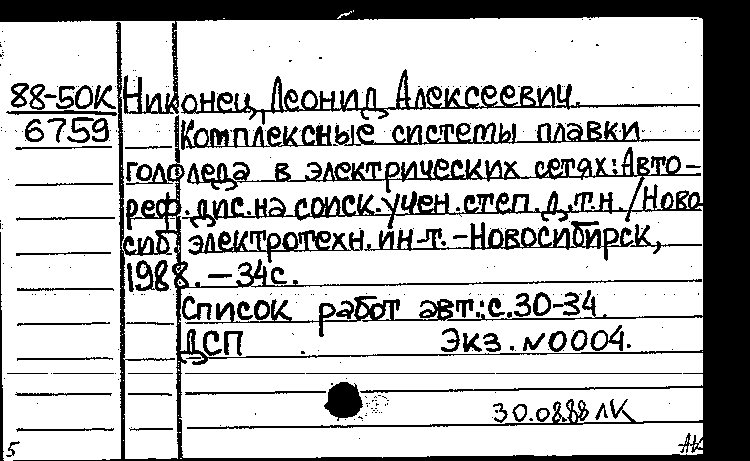 88-50К Никонец, Леонид Алексеевич.
6759 Комплексные системы плавки
гололеда в электрических сетях: Авто-
реф. дис. на соиск. учен. степ. д.т.н. / Ново
сиб. электротехн. ин-т. - Новосибирск,
1988. - 34с.
Список работ авт.: с. 30-34.
ДСП Экз. N0004.
30.08.88 ЛК
5 АК